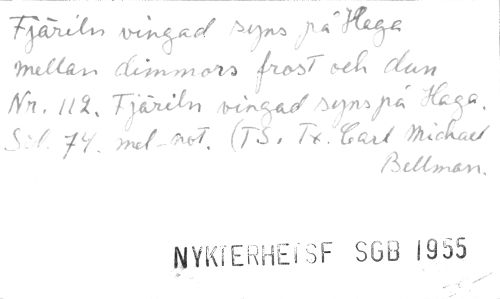 Fjäriln vingad syns på Haga
mellan dimmors frost och dun
Nr. 112. Fjäriln vingad syns på Haga.
Sid. 74. mel-not. (TS. Tx. Carl Michael
Bellman.
NYKTERHETSF SGB 1955